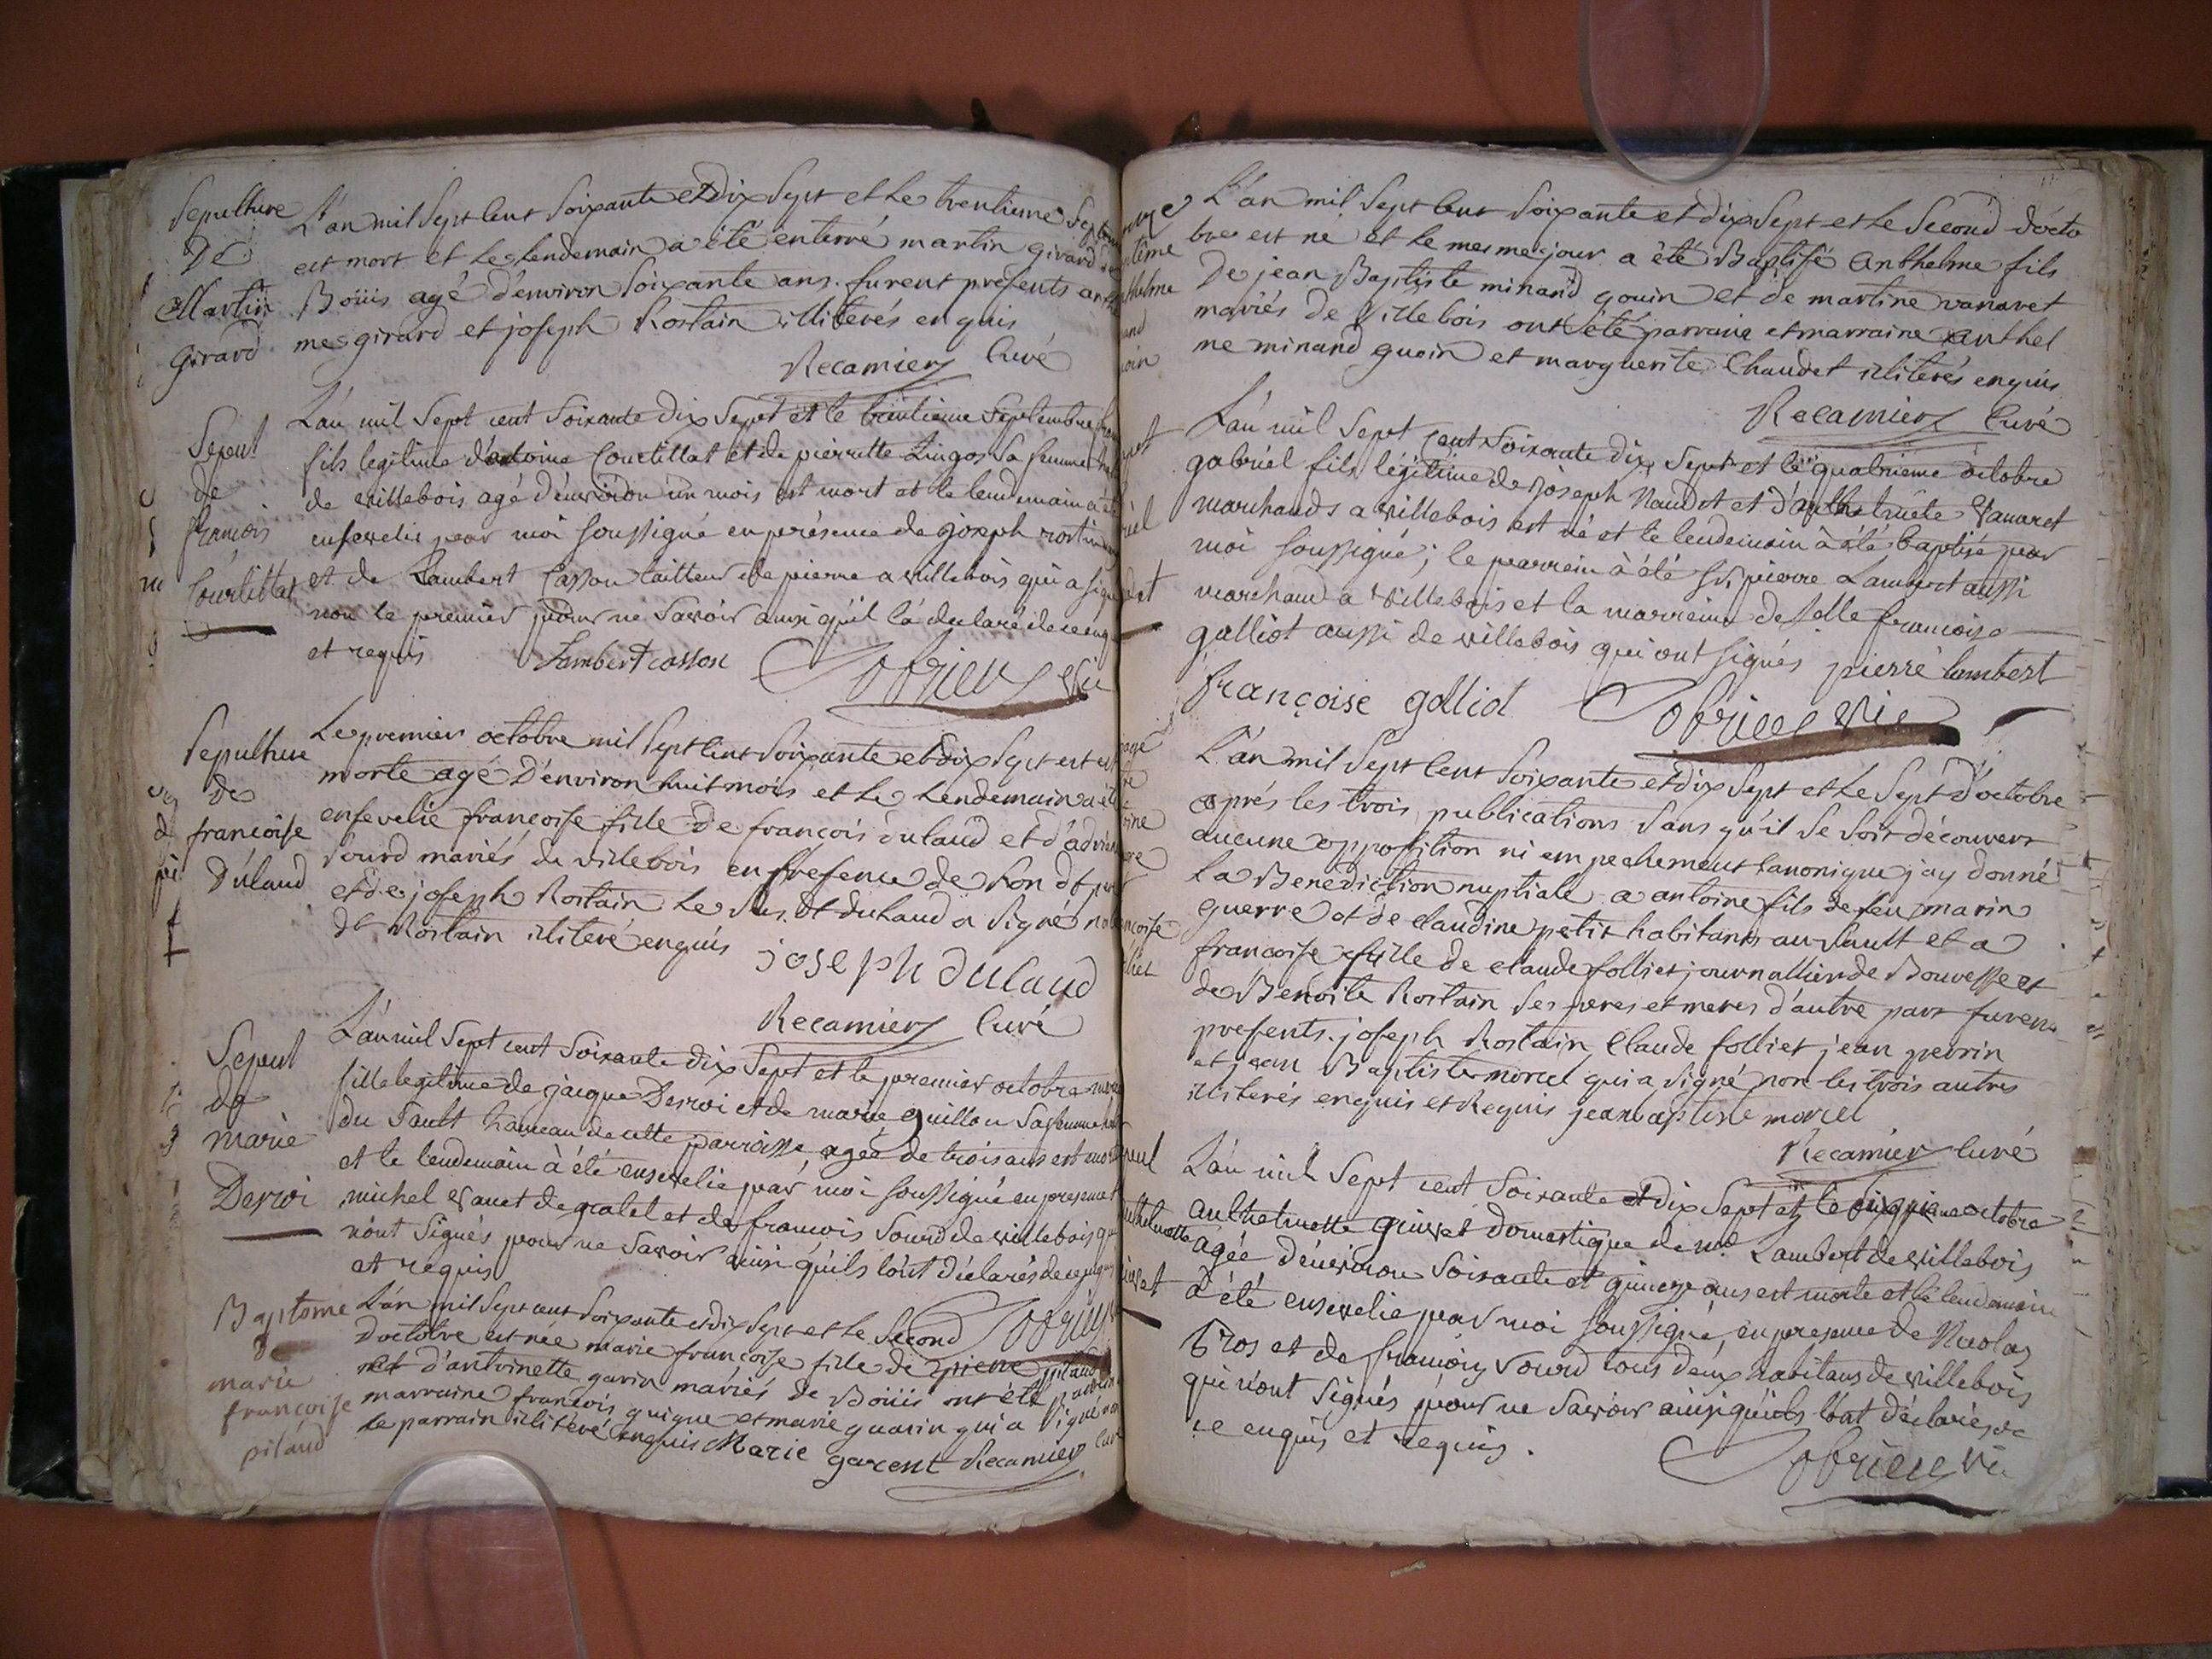 Sepulture
De
Martin
Girard
L'an mil Sept Cent Soixante et Dix Sept et Le trentieme Septem
est mort et Le Lendemain a été enterré martin girard de
Boüis agé d'environ Soixante ans. furent presents anthel
me girard et joseph Rostain illiterés enquis
Recamier Curé
Sepul
de
françois
Courtillat
L'an mil Sept cent Soixante dix Sept et le trentieme Septembre
fils legitime d'antoine Courtillat et de pierrette Lingos Sa femme
de villebois agé d'environ un mois est mort et le lendemain a été
ensevelis par moi soussigné en présence de joseph rostain
et de Lambert Casson tailleur de pierre a villebois qui a signé
non le premier pour ne savoir ainsi qu'il l'a declaré de ce enquis
et requis Lambert casson
Sobrieux vic
Sepulture
De
françoise
Dulaud
Le premier octobre mil Sept Cent Soixante et Dix Sept est
morte agé D'environ huit mois et Le Lendemain a été
ensevelie françoise fille De françois dulaud et d'adrienne
Sourd mariés de villebois en presence de son dt pere
et de joseph Rostain Le Sus dt dulaud a Signé non
dt Rostain illiteré enquis joseph dulaud
Recamier Curé
Sepul
de
marie
Derroi
L'an mil Sept cent Soixante dix Sept et le premier octobre marie
fille legitime de jacque Derroi et de marie guillou Sa femme
du Sault hameau de cette parroisse agée de trois ans est morte
et le lendemain à été ensevelie par moi soussigné en presence
michel vanet de et de françois Sourd de villebois qui
n'ont Signés pour ne Savoir ainsi qu'ils l'ont déclarés de ce enquis
et requis
Sobrieux
Baptome
De
marie
françoise
pilaud
L'an mil Sept cent Soixante et dix Sept et Le Second
D'octobre est née marie françoise fille de pierre pilaud
et d'antoinette garin mariés de Boüis ont été parrain
marraine françois guigue et marie guarin qui a Signé non
Le parrain illitéré enquis Marie garent Recamier Curé
L'an mil Sept Cent Soixante et Dix Sept et Le Second d'octo
bre est né et Le mesme jour a été Baptisé Anthelme fils
De jean Baptiste minand gouin et de martine vanaret
mariés De Villebois ont été parrain et marraine Anthel
me minand guoin et marguerite Chaudet illiterés enquis
Recamier Curé
L'an mil Sept Cent Soixante dix Sept et le quatrieme octobre
gabriel fils légitime de joseph Naudet et d'anthelmete Vanaret
marchands a villebois est né et le lendemain à été baptisé par
moi soussigné; le parrein à été Sr pierre Lambert aussi
marchand a villebois et la marreine delle françoise
galliot aussi de villebois qui ont signés pierre lambert
françoise golliot Sobrieux vic
L'an mil Sept Cent Soixante et dix Sept et Le Sept D'octobre
aprés les trois publications Sans qu'il Se Soit découvert
aucune opposition ni empechement Canonique j'ay donné
La Benediction nuptiale a antoine fils de feu marin
guerre et de claudine petit habitants au Sault et a
françoise fille de claude folliet journallier de Bouvesse et
de Benoite Rostain Ses peres et meres d'autre part furent
presents joseph Rostain Claude folliet jean perrin
et jean Baptiste morel qui a Signé non les trois autres
illiterés enquis et Requis jean baptiste morel
Recamier Curé
L'an mil Sept cent Soixante et dix Sept et le octobre
anthelmette guivet domestique de Mr Lambert de villebois
agée d'environ Soixante et quinze ans est morte et le lendemain
a été ensevelie par moi soussigné en presence de Nicolas
Gros et de françois Sourd tous deux habitans de villebois
qui n'ont Signés pour ne Savoir ainsi qu'ils l'ont déclarés de
ce enquis et requis.
Sobrieux vic